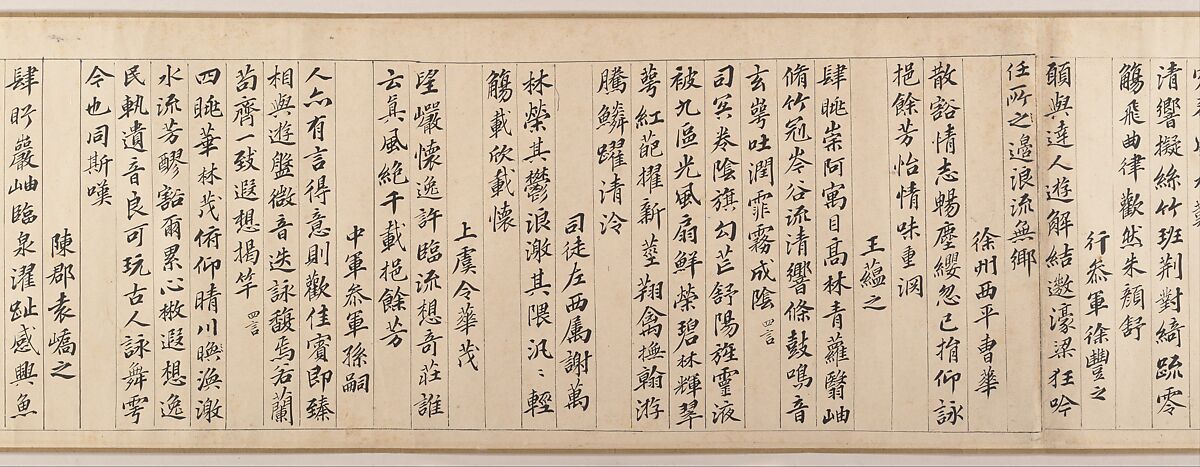 清響擬絲竹班荆對綺疏零
觴飛曲律歡然朱顏舒
行叅軍徐豐之
願與達人遊解結遨濠梁狂吟
任所之邉浪流無鄉
徐州西平曹華
散豁情志暢塵纓忽已捐仰詠
挹餘芳怡情味重渊
王藴之
肆眺崇阿寓目髙林青蘿翳岫
脩竹冠岑谷流清響條鼓鳴音
玄崿吐潤霏霧成陰 四言
司冥卷陰旗勾芒舒陽旌靈液
被九區光風扇鮮榮碧林輝翠
萼紅葩擢新莖翔禽撫翰游
騰鱗躍清泠
司徒左西属謝萬
林榮其鬱浪激其隈汎〻輕
觴載欣載懷
上虞令華茂
望巖懷逸許臨流想奇莊誰
云真風絶千載挹餘芳
中軍叅軍孫嗣
人亦有言得意則歡佳賓即臻
相與遊盤微音迭詠馥焉若蘭
苟齊一致遐想揭竿 四言
四眺華林茂俯仰晴川暎渙激
水流芳醪豁爾累心㪚遐想逸
民軌遺音良可玩古人詠舞雩
今也同斯嘆
陳郡袁嶠之
肆盻巖岫臨泉濯趾感興魚